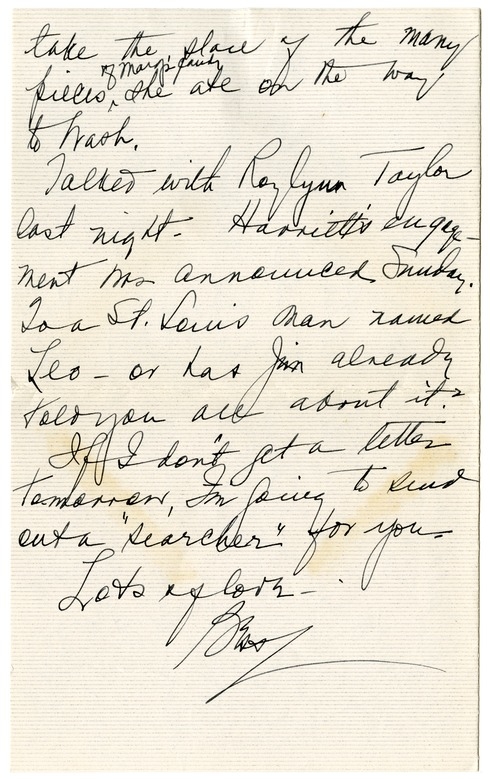 take the place of the many
of Marg's candy
pieces ^ she ate on the way
to Wash.
Talked with Roylynn Taylor
last night - Harriett's engage-
ment was announced Sunday.
To a St. Louis man named
Leo - or has Jim already
told you all about it?
If I don't get a letter
tomorrow, I'm going to send
out a "searcher" for you -
Lots of love -